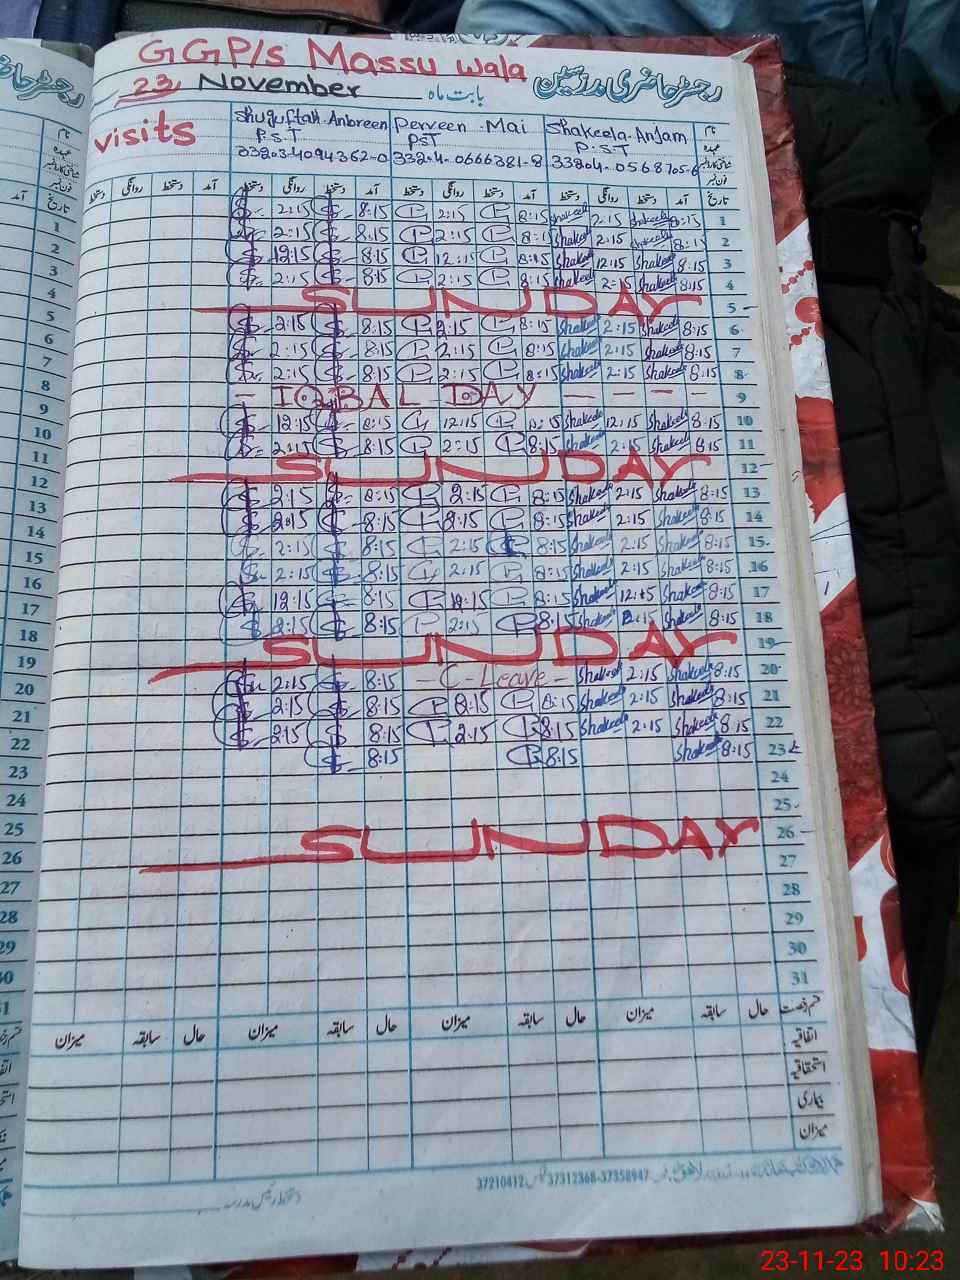 GGP/s Massu wala
رجسٹر حاضری مدرسین
23 November بابت ماہ
visits
Shuguftah Anbreen Perveen Mai Shakeela Anjam نام
P.S.T PST P.S.T عہدہ
33204-0666381-8
فون نمبر
دستخط روانگی دستخط آمد دستخط روانگی دستخط آمد دستخط روانگی دستخط آمد دستخط روانگی دستخط آمد تاریخ
2:15 8:15 2:15 8:15 Shakeela 2:15 Shakeela 8:15 1
2:15 8:15 2:15 8:15 Shakeela 2:15 Shakeela 8:15 2
12:15 8:15 12:15 8:15 Shakeela 12:15 Shakeela 8:15 3
2:15 8:15 2:15 8:15 Shakeela 2:15 Shakeela 8:15 4
SUNDAY 5
2:15 8:15 2:15 8:15 Shakeela 2:15 Shakeela 8:15 6
2:15 8:15 2:15 8:15 Shakeela 2:15 Shakeela 8:15 7
2:15 8:15 2:15 8:15 Shakeela 2:15 Shakeela 8:15 8
- IQBAL DAY - - - - 9
12:15 8:15 12:15 8:15 Shakeela 12:15 Shakeela 8:15 10
2:15 8:15 2:15 8:15 Shakeela 2:15 Shakeela 8:15 11
SUNDAY 12
2:15 8:15 2:15 8:15 Shakeela 2:15 Shakeela 8:15 13
2:15 8:15 8:15 8:15 Shakeela 2:15 Shakeela 8:15 14
2:15 8:15 2:15 8:15 Shakeela 2:15 Shakeela 8:15 15
2:15 8:15 2:15 8:15 Shakeela 2:15 Shakeela 8:15 16
12:15 8:15 12:15 8:15 Shakeela 12:15 Shakeela 8:15 17
2:15 8:15 2:15 8:15 Shakeela 2:15 Shakeela 8:15 18
SUNDAY 19
2:15 8:15 - C-Leave - Shakeela 2:15 Shakeela 8:15 20
2:15 8:15 2:15 8:15 Shakeela 2:15 Shakeela 8:15 21
2:15 8:15 2:15 8:15 Shakeela 2:15 Shakeela 8:15 22
8:15 8:15 Shakeela 8:15 23
24
25
SUNDAY 26
27
28
29
30
31
میزان سابقہ حال میزان سابقہ حال میزان سابقہ حال میزان سابقہ حال قسم رخصت
اتفاقیہ
استحقاقیہ
بیماری
میزان
37210412 37312368-37358947
دستخط رئیس مدرسہ
23-11-23 10:23